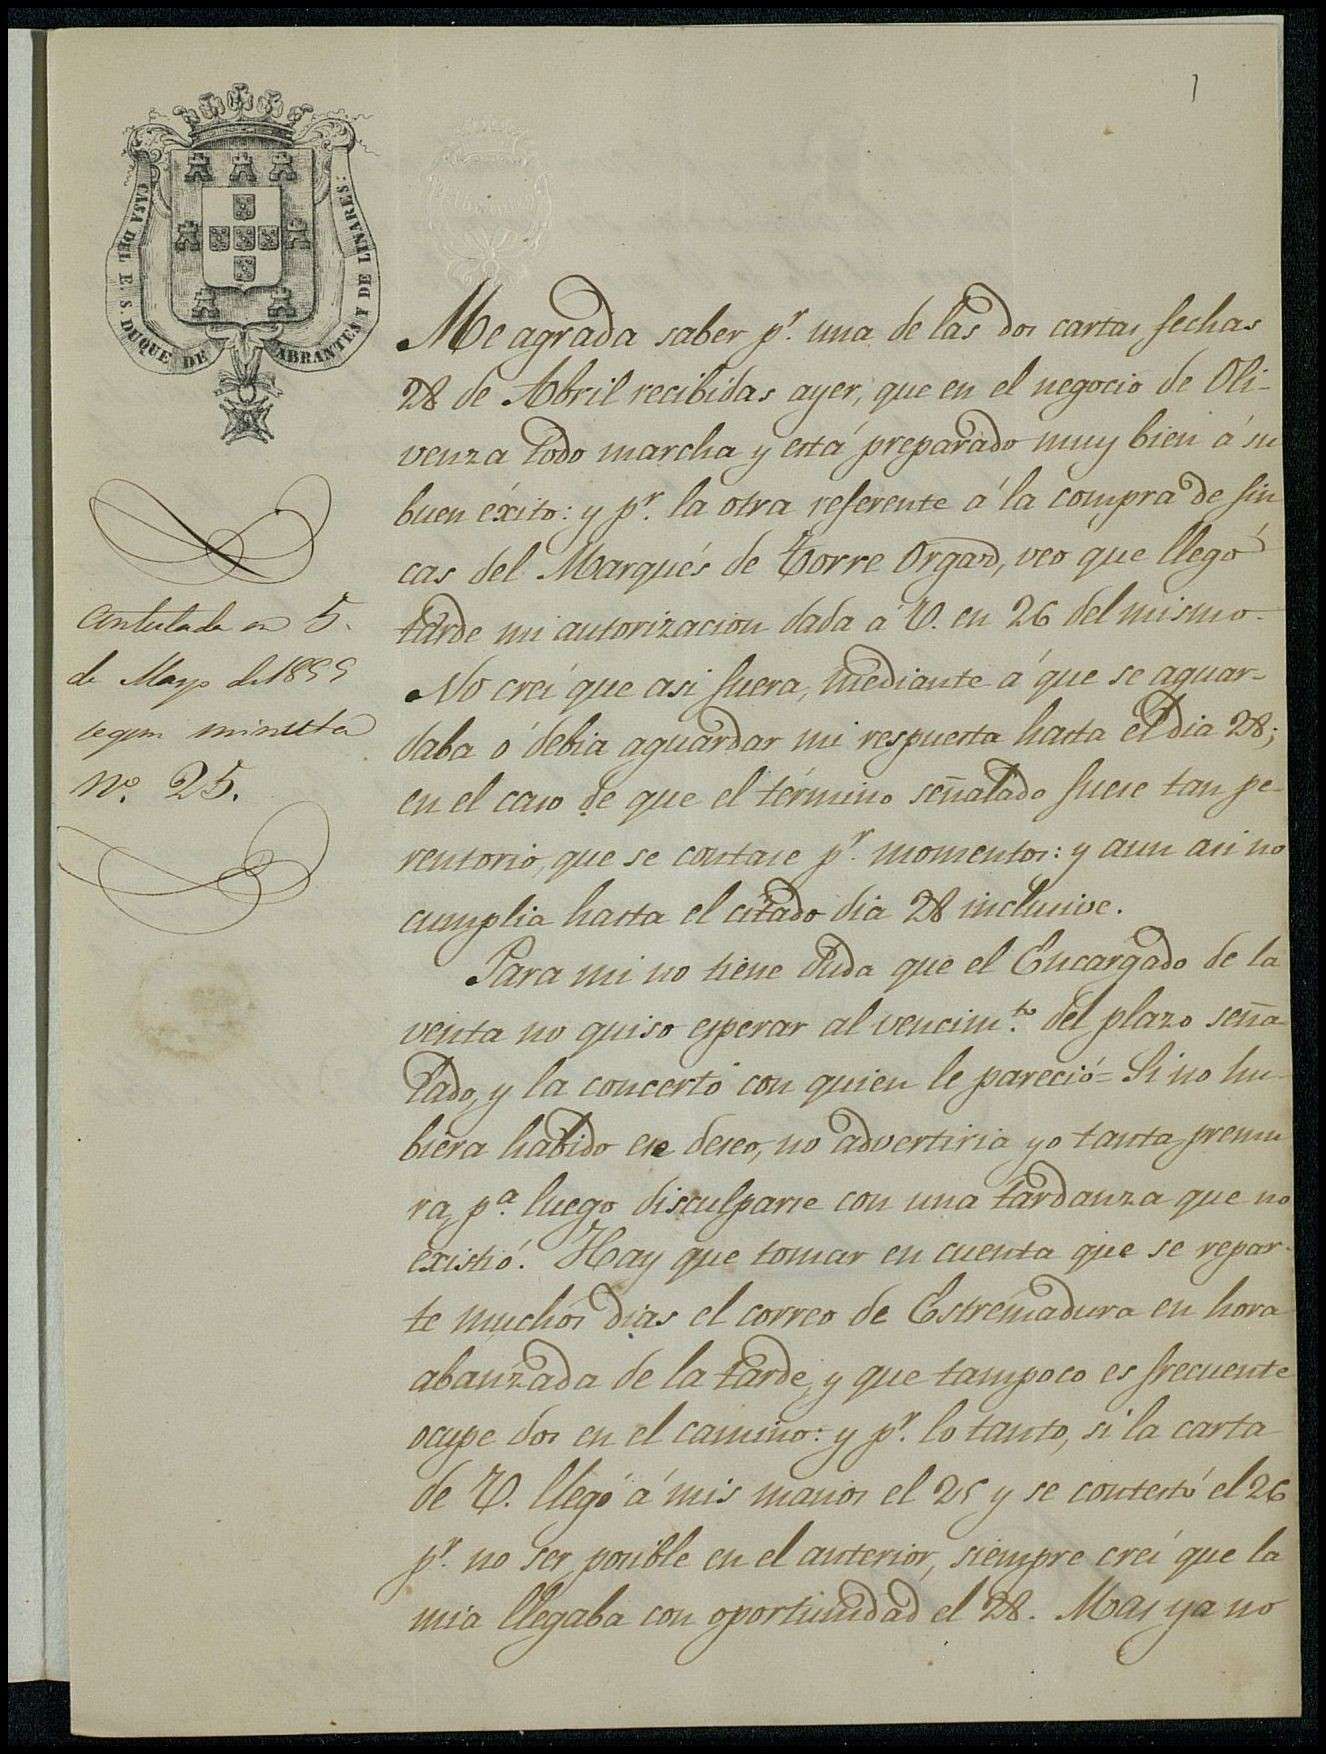 1
CASA DEL E. S. DUQUE DE ABRANTES Y DE LINARES:
Me agrada saber pr. una de las dos cartas fechas
28 de Abril recibidas ayer, que en el negocio de Oli-
venza todo marcha y está preparado muy bien á su
buen éxito: y pr. la otra referente á la compra de fin
cas del Marqués de Torre Orgaz, veo que llegó
tarde mi autorizacion dada á V. en 26 del mismo.
No creí que asi fuera, mediante á que se aguar-
daba ó debia aguardar mi respuesta hasta el dia 28;
en el caso de que el término señalado fuese tan pe-
rentorio, que se contase pr. momentos: y aun asi no
cumplia hasta el citado dia 28 inclusive.
Para mi no tiene duda que el Encargado de la
venta no quiso esperar al vencimto. del plazo seña-
lado, y la concertó con quien le pareció= Si no hu-
biera habido ese deseo, no advertiria yo tanta premu
ra, pa. luego disculparse con una tardanza que no
existió. Hay que tomar en cuenta que se repar-
te muchos dias el correo de Estremadura en hora
abanzada de la tarde, y que tampoco es frecuente
ocupe dos en el camino: y pr. lo tanto, si la carta
de V. llegó á mis manos el 25 y se contestó el 26
pr. no ser posible en el anterior, siempre creí que la
mia llegaba con oportunidad el 28. Mas ya no
Contestada en 5.
de Mayo de 1855
segun minuta
No. 25.